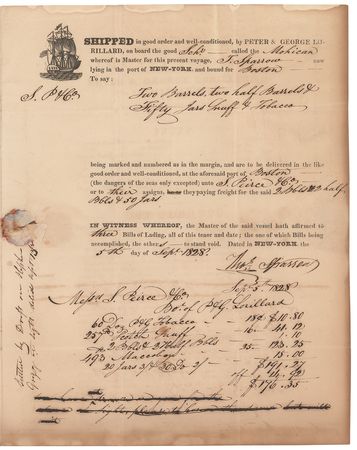 SHIPPED in good order and well-conditioned, by PETER & GEORGE LO-
RILLARD, on board the good Schr called the Mohican
whereof is Master for this present voyage, T. Sparrow now
lying in the port of NEW-YORK, and bound for Boston
To say:
S. P & Co
Two Barrels, two half Barrels &
Fifty Jars Snuff & Tobacco
being marked and numbered as in the margin, and are to be delivered in the like
good order and well-conditioned, at the aforesaid port of Boston
(the dangers of the seas only excepted) unto S. Pierce & Co
or to their assigns, they paying freight for the said 2 Bbls & 2 half
Bbls & 50 Jars
IN WITNESS WHEREOF, the Master of the said vessel hath affirmed to
three Bills of Lading, all of this tenor and date; the one of which Bills being
accomplished, the others to stand void. Dated in NEW-YORK, the
5th day of Sept 1828.
Sparrow
Sept 5th 1828
Messrs S. Pierce & Co
Bo. of P & G Lorillard
60 P & G Tobacco 18 $10.80
25 Scotch Snuff 16
2 Bbls & 2 Half Bbls 25 123.25
493 Maccoboy
20 Jars 3/ & 30 Do 2/ 15.00
off
$176.35